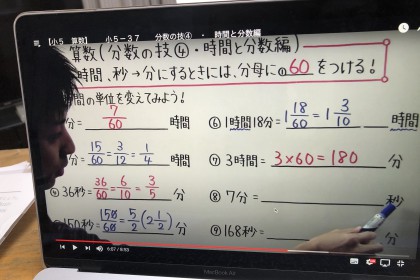 【小5 算数】 小5-37 分数の技④ ・ 時間と分数編
算数(分数の技④・時間と分数編)
時間、秒→分にするときには、分母に① 60 をつける!
間の単位を変えてみよう!
分= 7/60 時間
⑥ 1時間18分= 1 18/60 = 1 3/10 時間
分= 15/60 = 3/12 = 1/4 時間
⑦ 3時間= 3×60=180 分
④ 36秒= 36/60 = 6/10 = 3/5 分
⑧ 7分= 秒
150秒= 150/60 = 5/2 (2 1/2) 分
⑨ 168秒= 分
MacBook Air